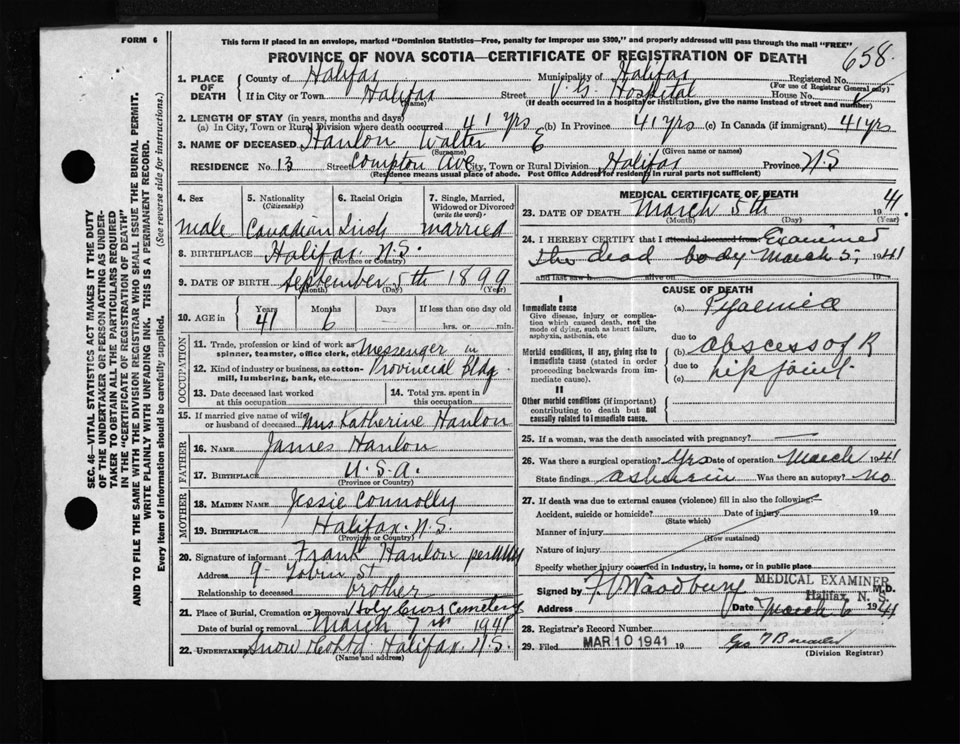 FORM 6
This form if placed in an envelope, marked "Dominion Statistics—Free, penalty for improper use $300," and properly addressed will pass through the mail "FREE"
PROVINCE OF NOVA SCOTIA—CERTIFICATE OF REGISTRATION OF DEATH
658
1. PLACE OF DEATH County of Halifax Municipality of Halifax Registered No.
(For use of Registrar General only)
If in City or Town Halifax (Name) Street V. G. Hospital House No.
(If death occurred in a hospital or institution, give the name instead of street and number)
2. LENGTH OF STAY (in years, months and days)
(a) In City, Town or Rural Division where death occurred 41 yrs (b) In Province 41 yrs (c) In Canada (if immigrant) 41 yrs
3. NAME OF DECEASED Hanlon Walter E
(Surname) (Given name or names)
RESIDENCE No. 13 Street Compton Ave City, Town or Rural Division Halifax Province N S
(Residence means usual place of abode. Post Office Address for residence in rural parts not sufficient)
4. Sex male
5. Nationality (Citizenship) Canadian
6. Racial Origin Irish
7. Single, Married, Widowed or Divorced (write the word) married
8. BIRTHPLACE Halifax N.S.
(Province or Country)
9. DATE OF BIRTH September 5th 1899
(Month) (Day) (Year)
10. AGE in Years 41 Months 6 Days — If less than one day old
hrs. or min.
OCCUPATION
11. Trade, profession or kind of work as spinner, teamster, office clerk, etc. Messenger in
12. Kind of industry or business, as cotton-mill, lumbering, bank, etc. Provincial Bldg
13. Date deceased last worked at this occupation
14. Total yrs. spent in this occupation
15. If married give name of wife or husband of deceased Mrs Katherine Hanlon
FATHER
16. NAME James Hanlon
17. BIRTHPLACE U.S.A.
(Province or Country)
MOTHER
18. MAIDEN NAME Jessie Connolly
19. BIRTHPLACE Halifax. N.S.
(Province or Country)
20. Signature of informant Frank Hanlon
Address 9 Tobin St
Relationship to deceased brother
21. Place of Burial, Cremation or Removal Holy Cross Cemetery
Date of burial or removal March 7th 1941
22. UNDERTAKER Snow Halifax. N.S.
(Name and address)
MEDICAL CERTIFICATE OF DEATH
23. DATE OF DEATH March 5th 1941
(Month) (Day) (Year)
24. I HEREBY CERTIFY that I attended deceased from Examined
the dead body March 5, 1941
and last saw h alive on 19
CAUSE OF DEATH
I
Immediate cause
Give disease, injury or complication which caused death, not the mode of dying, such as heart failure, asphyxia, asthenia, etc
(a) Pyaemia
due to
Morbid conditions, if any, giving rise to immediate cause (stated in order proceeding backwards from immediate cause).
(b) abscess of R
due to
(c) hip joint.
II
Other morbid conditions (if important) contributing to death but not causally related to immediate cause.
25. If a woman, was the death associated with pregnancy? —
26. Was there a surgical operation? Yes Date of operation March 1941
State findings as herein Was there an autopsy? no
27. If death was due to external causes (violence) fill in also the following:—
Accident, suicide or homicide? Date of injury 19
(State which)
Manner of injury
(How sustained)
Nature of injury
Specify whether injury occurred in industry, in home, or in public place
Signed by F. V. Woodbury M.D.
MEDICAL EXAMINER
Halifax, N. S.
Address Date March 6 1941
28. Registrar's Record Number
29. Filed MAR 10 1941 19
(Division Registrar)
SEC. 46—VITAL STATISTICS ACT MAKES IT THE DUTY OF THE UNDERTAKER OR PERSON ACTING AS UNDERTAKER TO OBTAIN ALL THE PARTICULARS REQUIRED IN THE "CERTIFICATE OF REGISTRATION OF DEATH"
AND TO FILE THE SAME WITH THE DIVISION REGISTRAR WHO SHALL ISSUE THE BURIAL PERMIT.
WRITE PLAINLY WITH UNFADING INK. THIS IS A PERMANENT RECORD.
Every item of information should be carefully supplied. (See reverse side for instructions.)